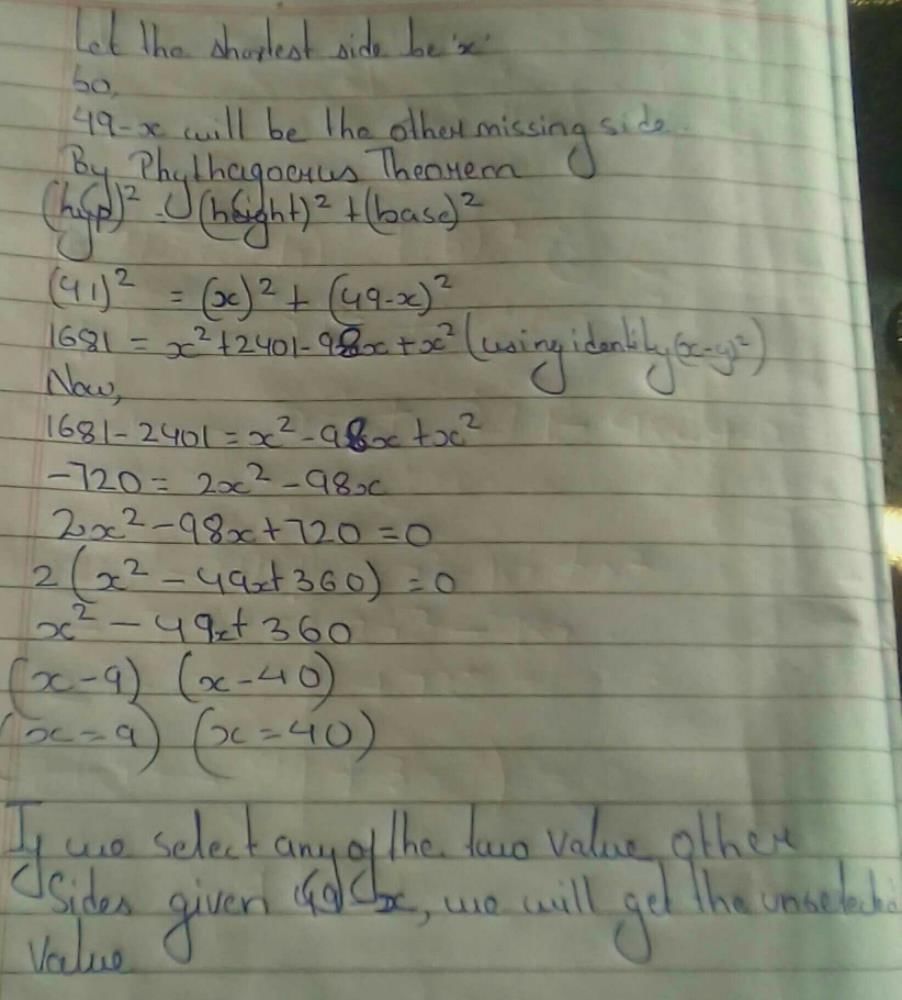 Let the shortest side be 'x'
So,
49-x will be the other missing side.
By Phythagorus Theorem
(hyp)² = (height)² + (base)²
(41)² = (x)² + (49-x)²
1681 = x²+2401-98x+x² (using identity (x-y)²)
Now,
1681-2401 = x²-98x+x²
-720 = 2x²-98x
2x²-98x+720=0
2(x²-49x+360)=0
x²-49x+360
(x-9) (x-40)
(x=9) (x=40)
If we select any of the two value, other
Sides given 49-x, we will get the unselected
Value